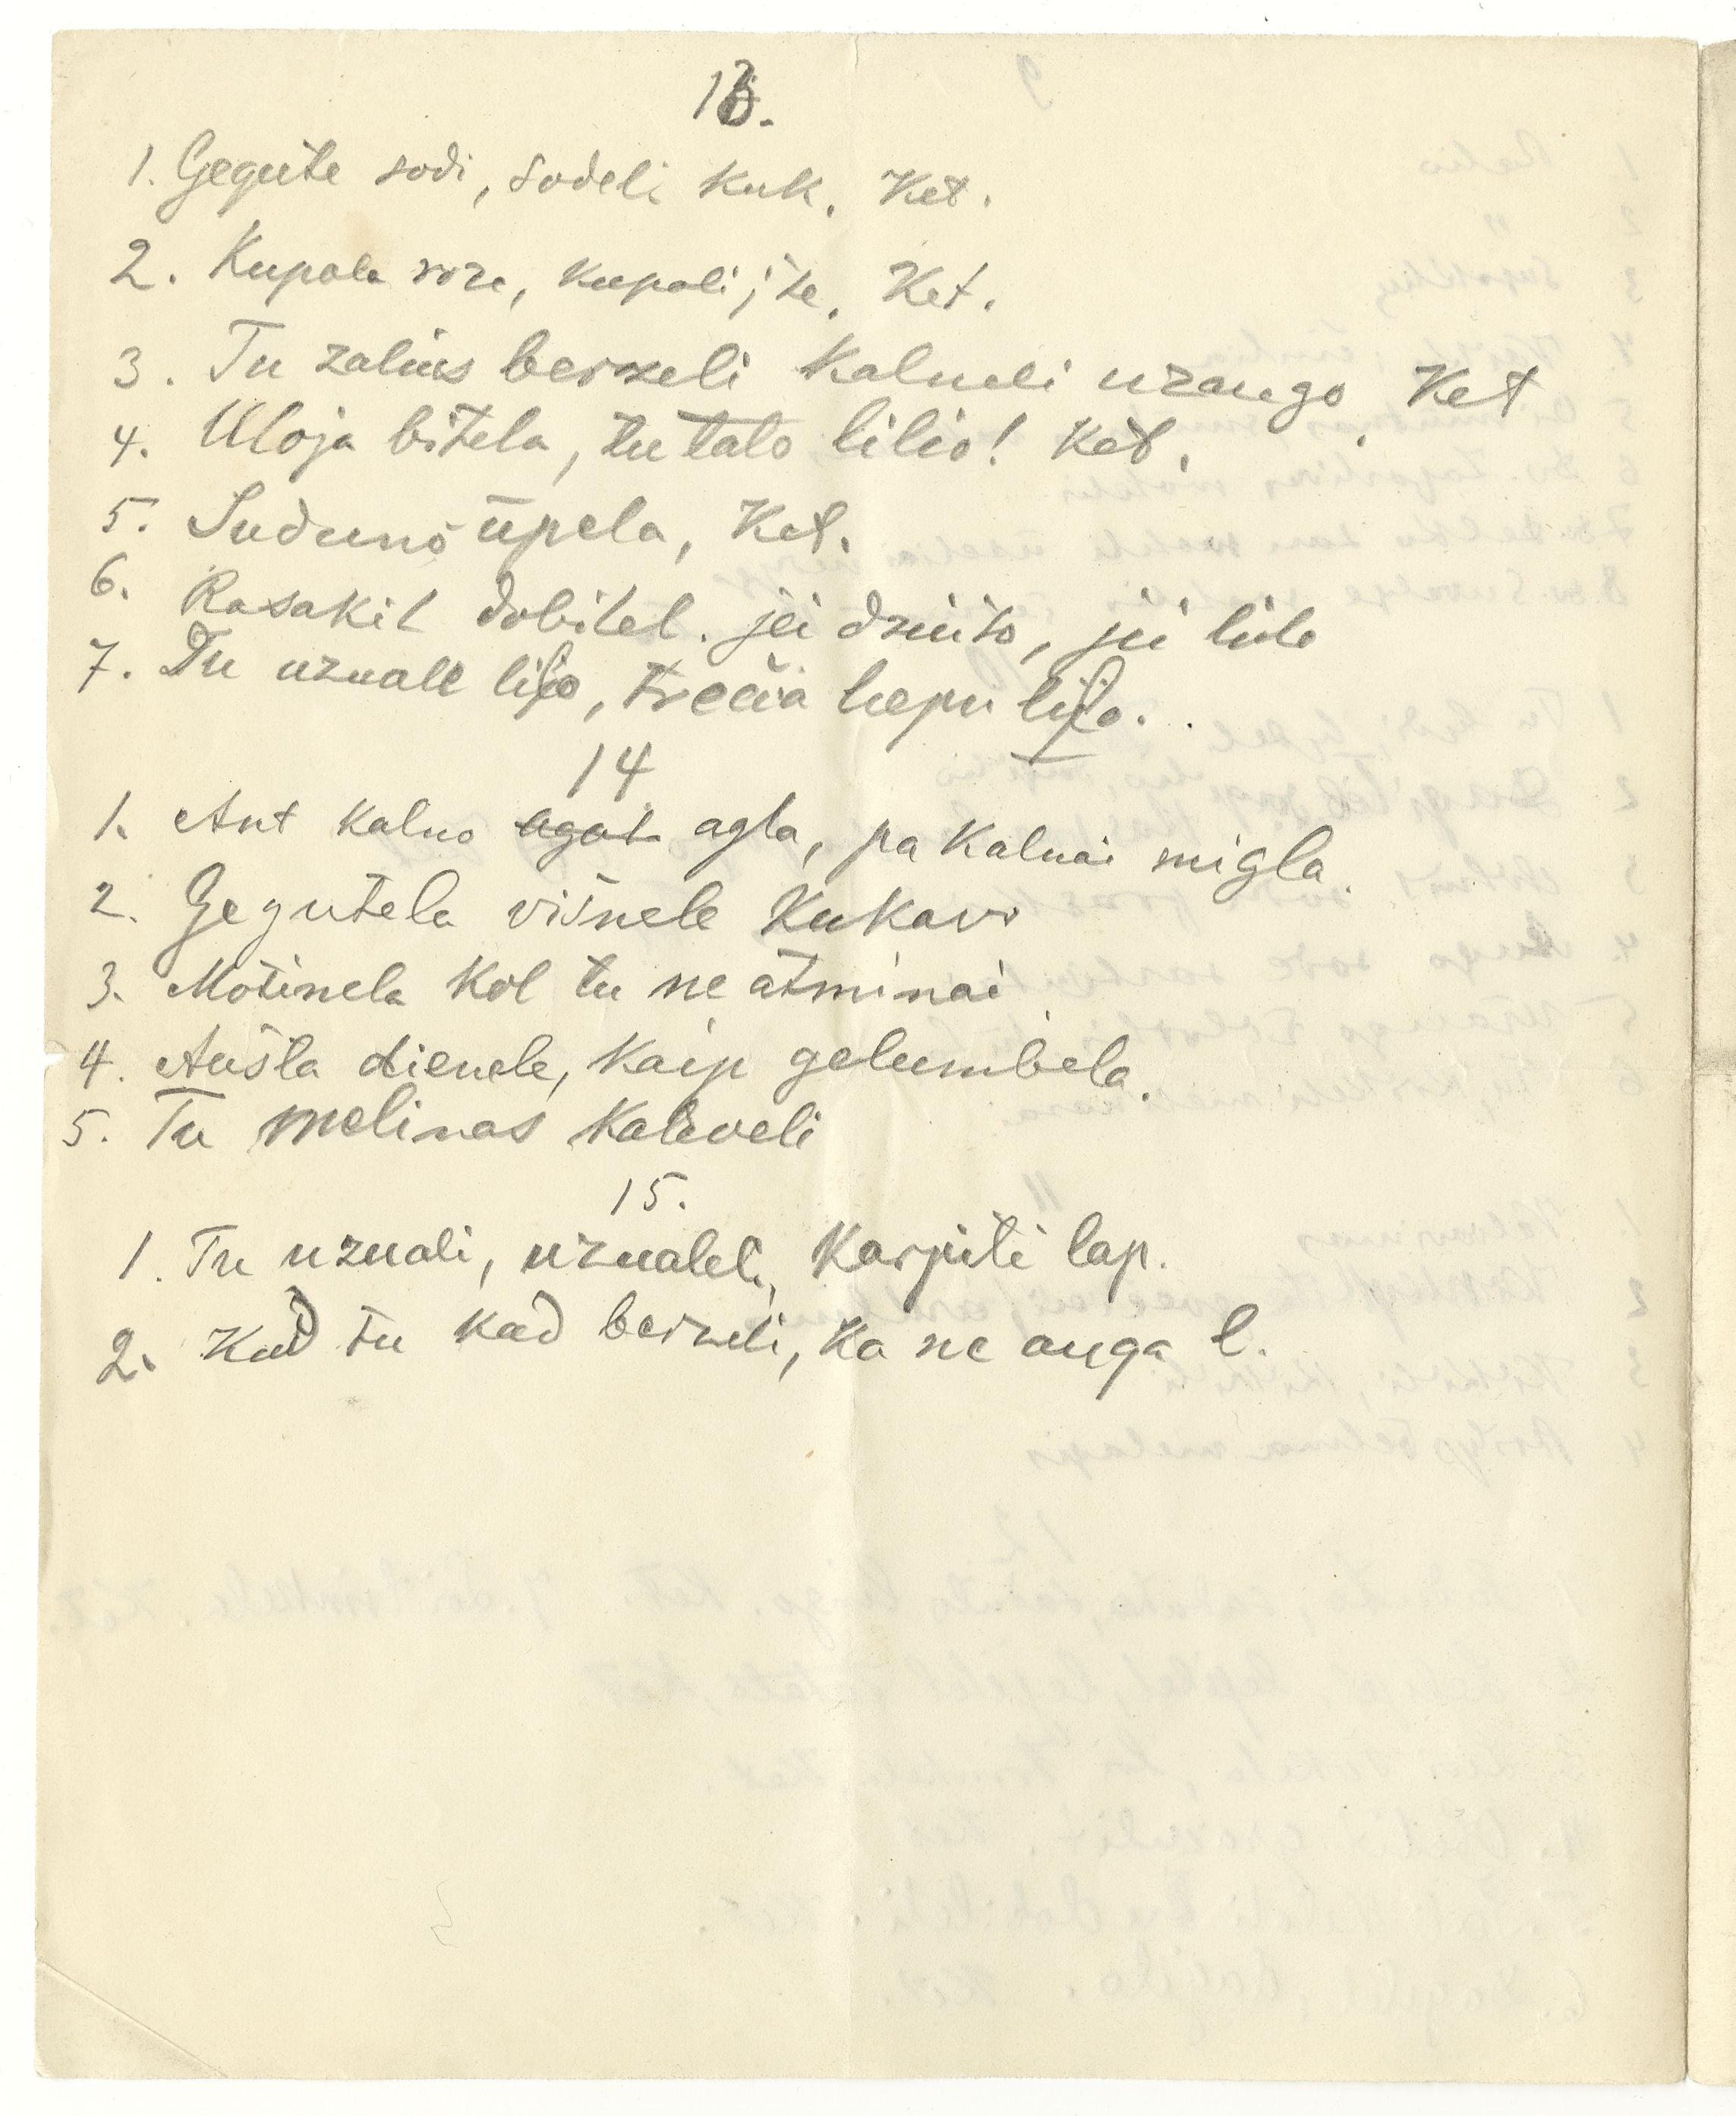 13.
1. Gegute sodi, sodeli kuk. Ket.
2. Kupole roze, kupolijte. Ket.
3. Tu zalius berzeli kalneli uzaugo. Ket
4. Uloja bitela, tu tato lilio! Ket.
5. Suduno upela, Ket.
6. Rasakil dobilel. jei dziito, jei lilo
7. Tu uzuale lijo, trečia liepu lijo.
14
1. Ant kalno agla, pa kalnai migla.
2. Gegutela višnele kukavo
3. Motinela kol tu ne atminai
4. Aušta dienele, kaip gelumbela.
5. Tu melinas kaleveli
15.
1. Tu uzuali, uzualeli, karpiti lap.
2. Kad tu kad berzeli, ka ne auga l.